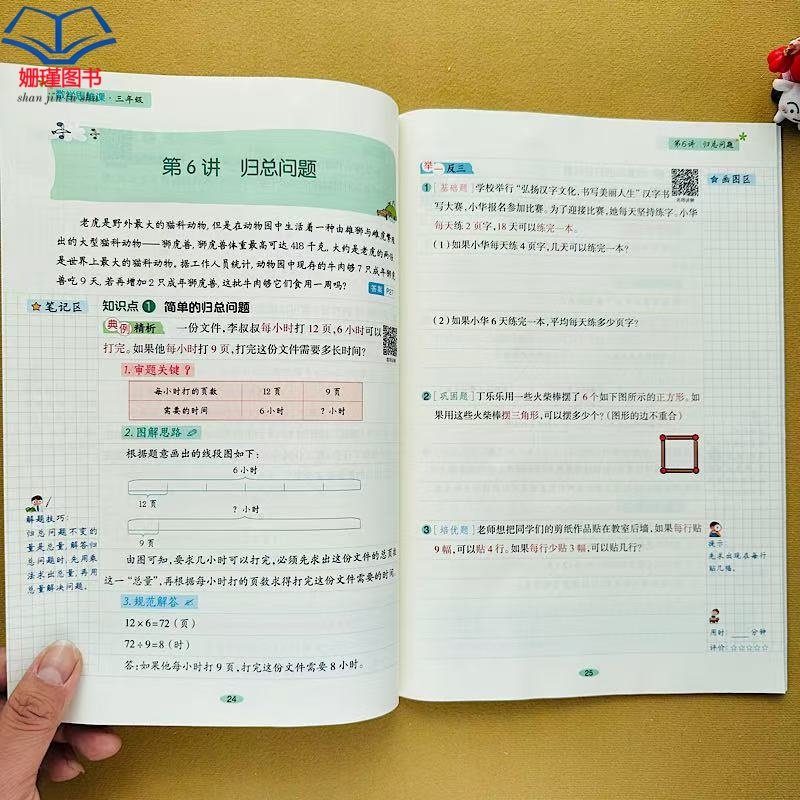 姗瑾图书
shan jin tu shu
数学思维课·三年级
第6讲 归总问题
老虎是野外最大的猫科动物,但是在动物园中生活着一种由雄狮与雌虎繁殖
出的大型猫科动物——狮虎兽,狮虎兽体重最高可达418千克,大约是老虎的两倍,
是世界上最大的猫科动物。据工作人员统计,动物园中现存的牛肉够7只成年狮虎
兽吃9天,若再增加2只成年狮虎兽,这批牛肉够它们食用一周吗?
答案 P27
笔记区
知识点1 简单的归总问题
典例精析 一份文件,李叔叔每小时打12页,6小时可以
打完。如果他每小时打9页,打完这份文件需要多长时间?
1.审题关键
每小时打的页数 12页 9页
需要的时间 6小时 ?小时
2.图解思路
根据题意画出的线段图如下:
6小时
12页
?小时
9页
解题技巧:
归总问题不变的
量是总量,解答归
总问题时,先用乘
法求出总量,再用
总量解决问题。
由图可知,要求几小时可以打完,必须先求出这份文件的总页数
这一“总量”,再根据每小时打的页数求得打完这份文件需要的时间。
3.规范解答
12×6=72(页)
72÷9=8(时)
答:如果他每小时打9页,打完这份文件需要8小时。
24
第6讲 归总问题
举一反三
画图区
1 [基础题]学校举行“弘扬汉字文化,书写美丽人生”汉字书
写大赛,小华报名参加比赛。为了迎接比赛,她每天坚持练字。小华
每天练2页字,18天可以练完一本。
(1)如果小华每天练4页字,几天可以练完一本?
(2)如果小华6天练完一本,平均每天练多少页字?
2 [巩固题]丁乐乐用一些火柴棒摆了6个如下图所示的正方形。如
果用这些火柴棒摆三角形,可以摆多少个?(图形的边不重合)
3 [培优题]老师想把同学们的剪纸作品贴在教室后墙,如果每行贴
9幅,可以贴4行。如果每行少贴3幅,可以贴几行?
提示
先求出现在每行
贴几幅。
用时:____分钟
评价:☆☆☆☆☆
25